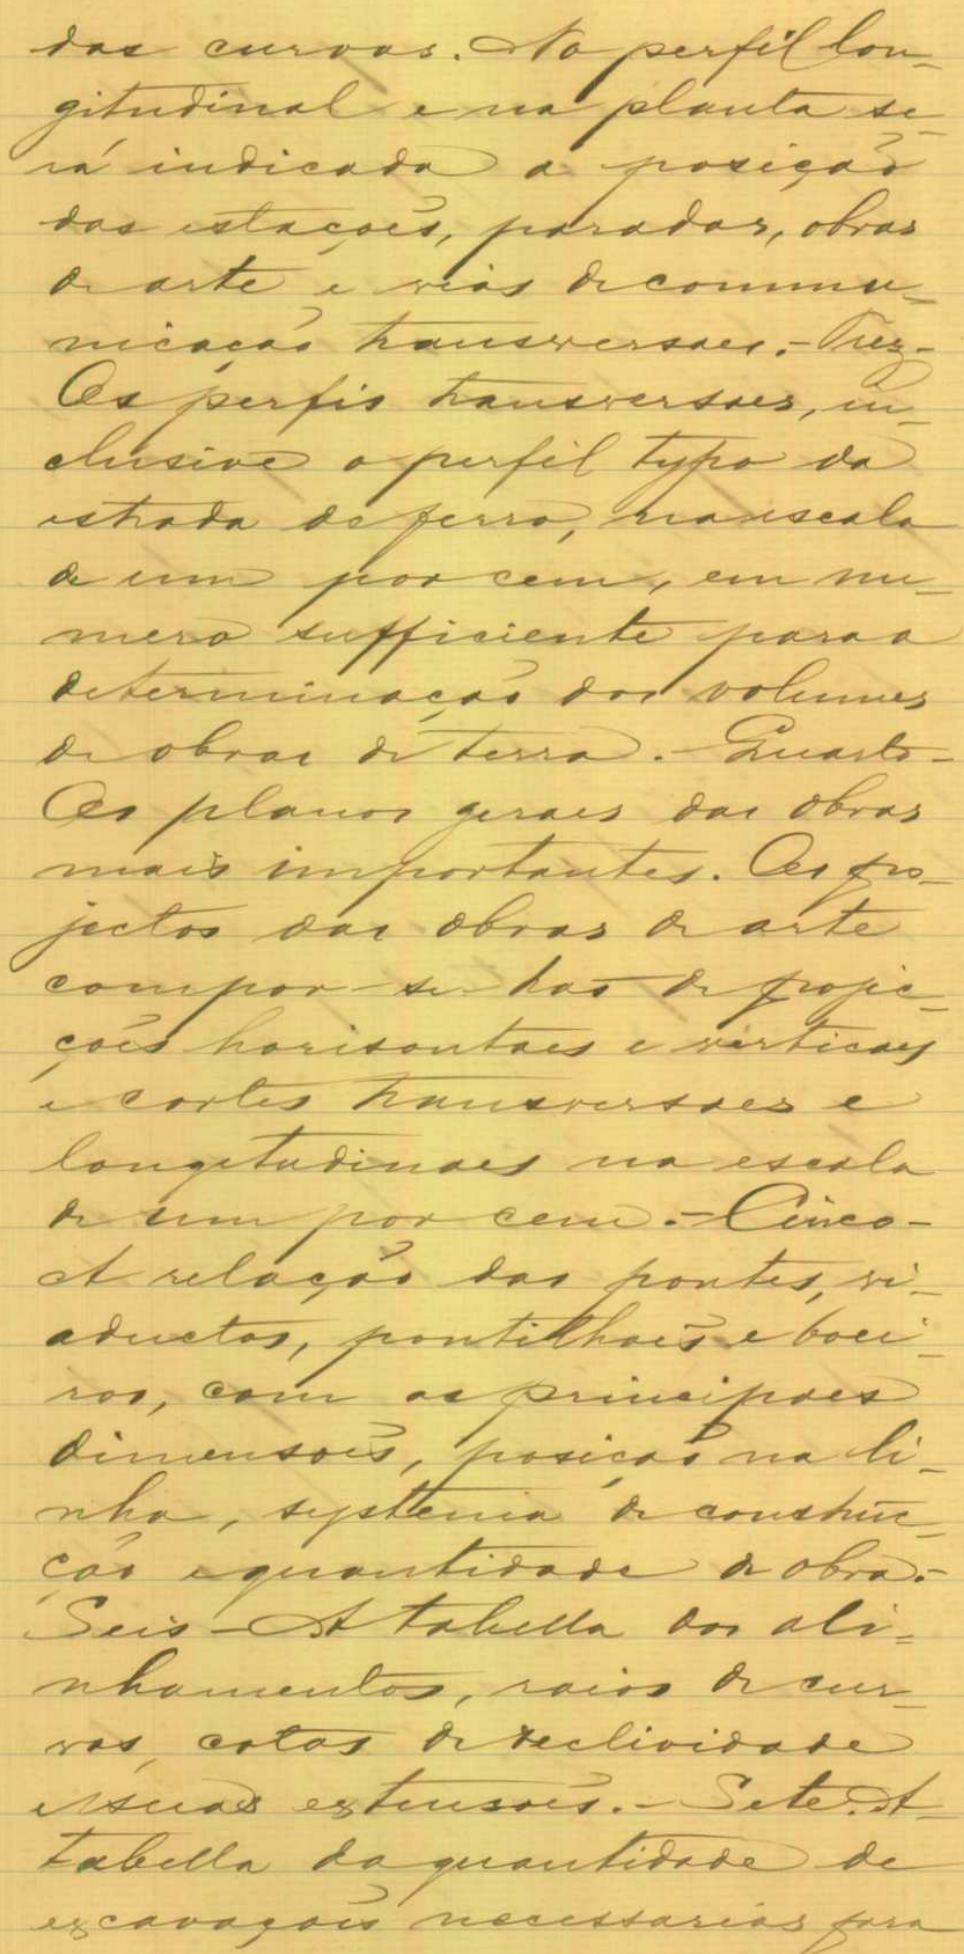 das curvas. No perfil lon-
gitudinal e na planta se-
rá indicada a posição
das estações, paradas, obras
de arte e vias de commu-
nicação transversaes.- Trez-
Os perfis transversaes, in-
clusive o perfil typo da
estrada de ferro, na escala
de um por cem, em nu-
mero sufficiente para a
determinação dos volumes
de obras de terra. - Quarto -
Os planos geraes das obras
mais importantes. Os pro-
jectos das obras de arte
compor-se-hão de projec-
ções horisontaes e verticaes
e cortes transversaes e
longetudinaes na escala
de um por cem. - Cinco -
A relação das pontes, vi-
aductos, pontilhões e boei-
ros, com as principaes
dimensões, posição na li-
nha, systema de construc-
ção e quantidade de obra.-
Seis - A tabella dos ali-
nhamentos, raios de cur-
vas, cotas de declividade
e suas extensões. - Sete. A
tabella da quantidade de
excavações necessarias para